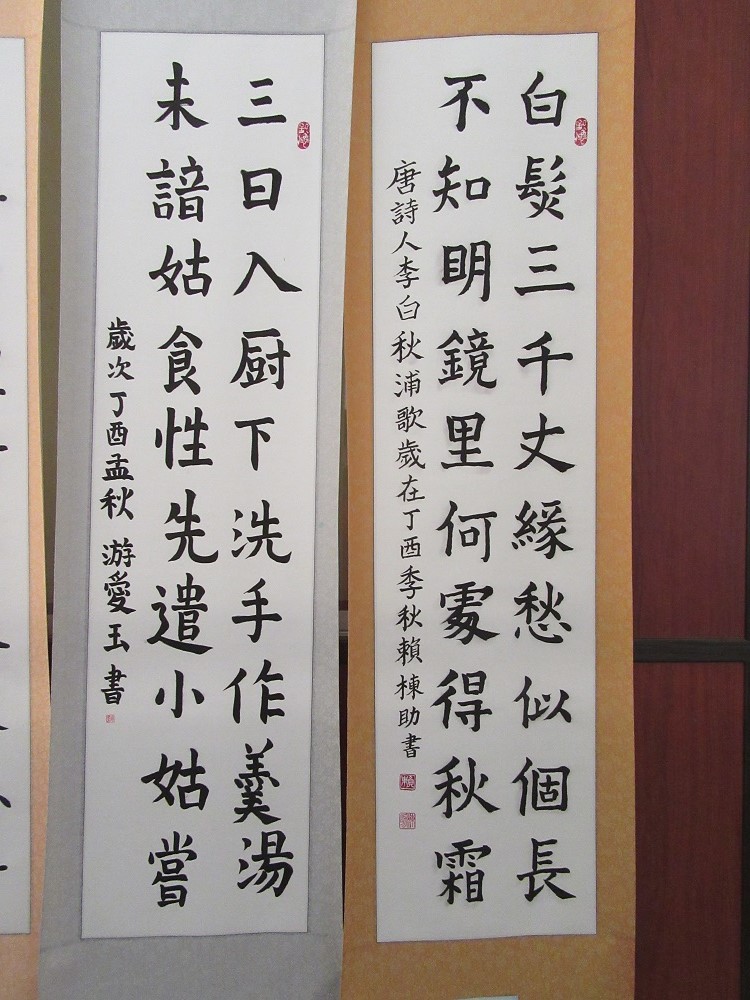 白髮三千丈緣愁似個長
不知明鏡里何處得秋霜
唐詩人李白秋浦歌歲在丁酉季秋賴棟助書
三日入厨下洗手作羹湯
未諳姑食性先遣小姑嘗
歲次丁酉孟秋 游愛玉書